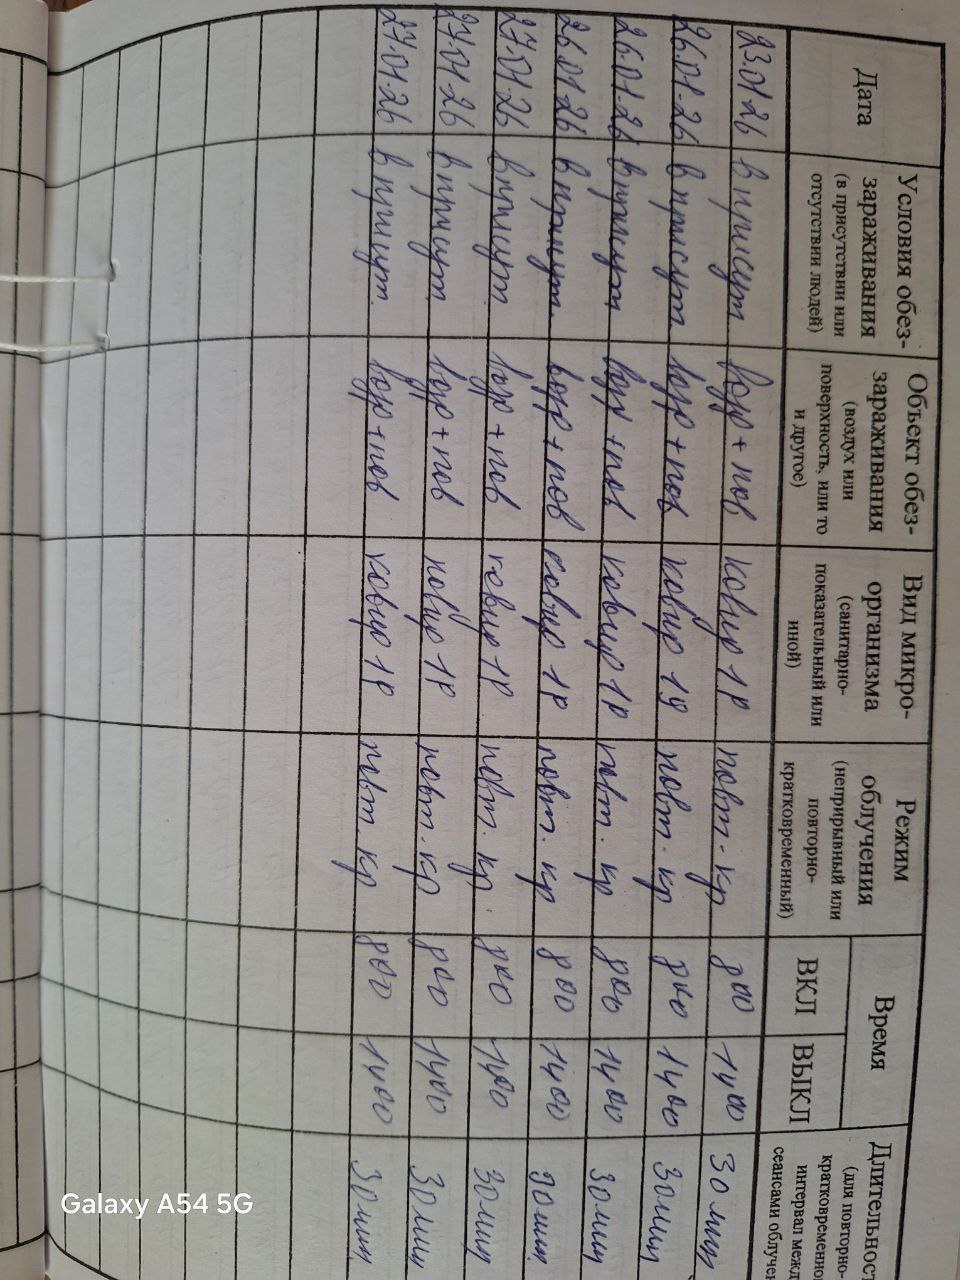 Дата
Условия обез-
зараживания
(в присутствии или
отсутствии людей)
Объект обез-
зараживания
(воздух или
поверхность, или то
и другое)
Вид микро-
организма
(санитарно-
показательный или
иной)
Режим
облучения
(неприрывный или
повторно-
кратковременный)
Время
ВКЛ
ВЫКЛ
Длительност
(для повторно-
кратковременно
интервал межд
сеансами облучен
23.01.26 в присут возд + пов повт. кр 800 1400 30 мин
26.01.26 в присут возд + пов повт. кр 800 1400 30 мин
26.01.26 в присут возд + пов повт. кр 800 1400 30 мин
26.01.26 в присут. возд + пов повт. кр 800 1400 мин
27.01.26 в присут возд + пов повт. кр. 800 1400 30 мин
27.01.26 в присут возд + пов повт. кр 800 1400 30 мин
27.01.26 в присут. возд + пов повт. кр 800 1400 30 мин
Galaxy A54 5G